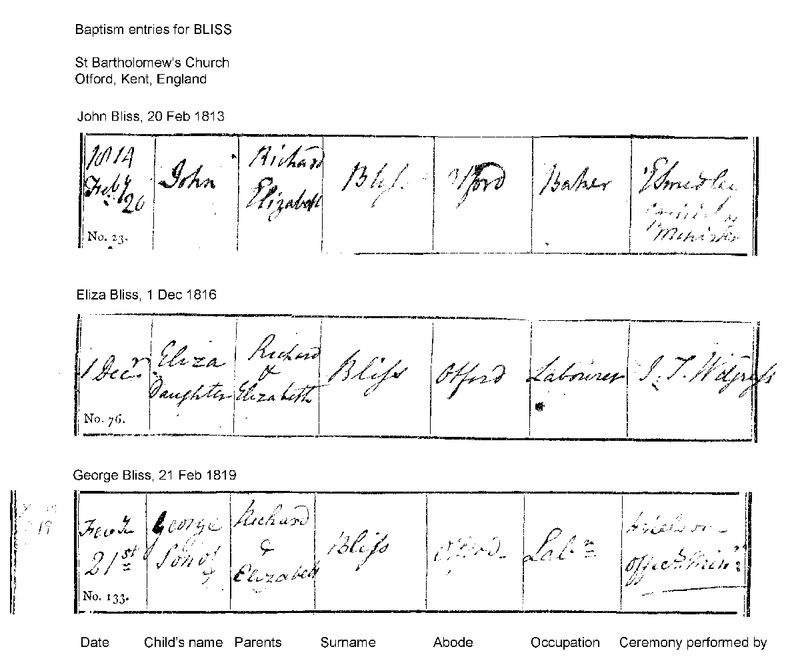 Baptism entries for BLISS
St Bartholomew's Church
Otford, Kent, England
John Bliss, 20 Feb 1813
1814
Feby
20
No. 23.
John
Richard
Elizabeth
Bliss
Otford
Baker
Minister
Eliza Bliss, 1 Dec 1816
1 Decr
No. 76.
Eliza
Daughter
Richard
&
Elizabeth
Bliss
Otford
Labourer
George Bliss, 21 Feb 1819
19
21st
No. 133.
George
Son of
Richard
&
Elizabeth
Bliss
Otford
Labr
Date Child's name Parents Surname Abode Occupation Ceremony performed by